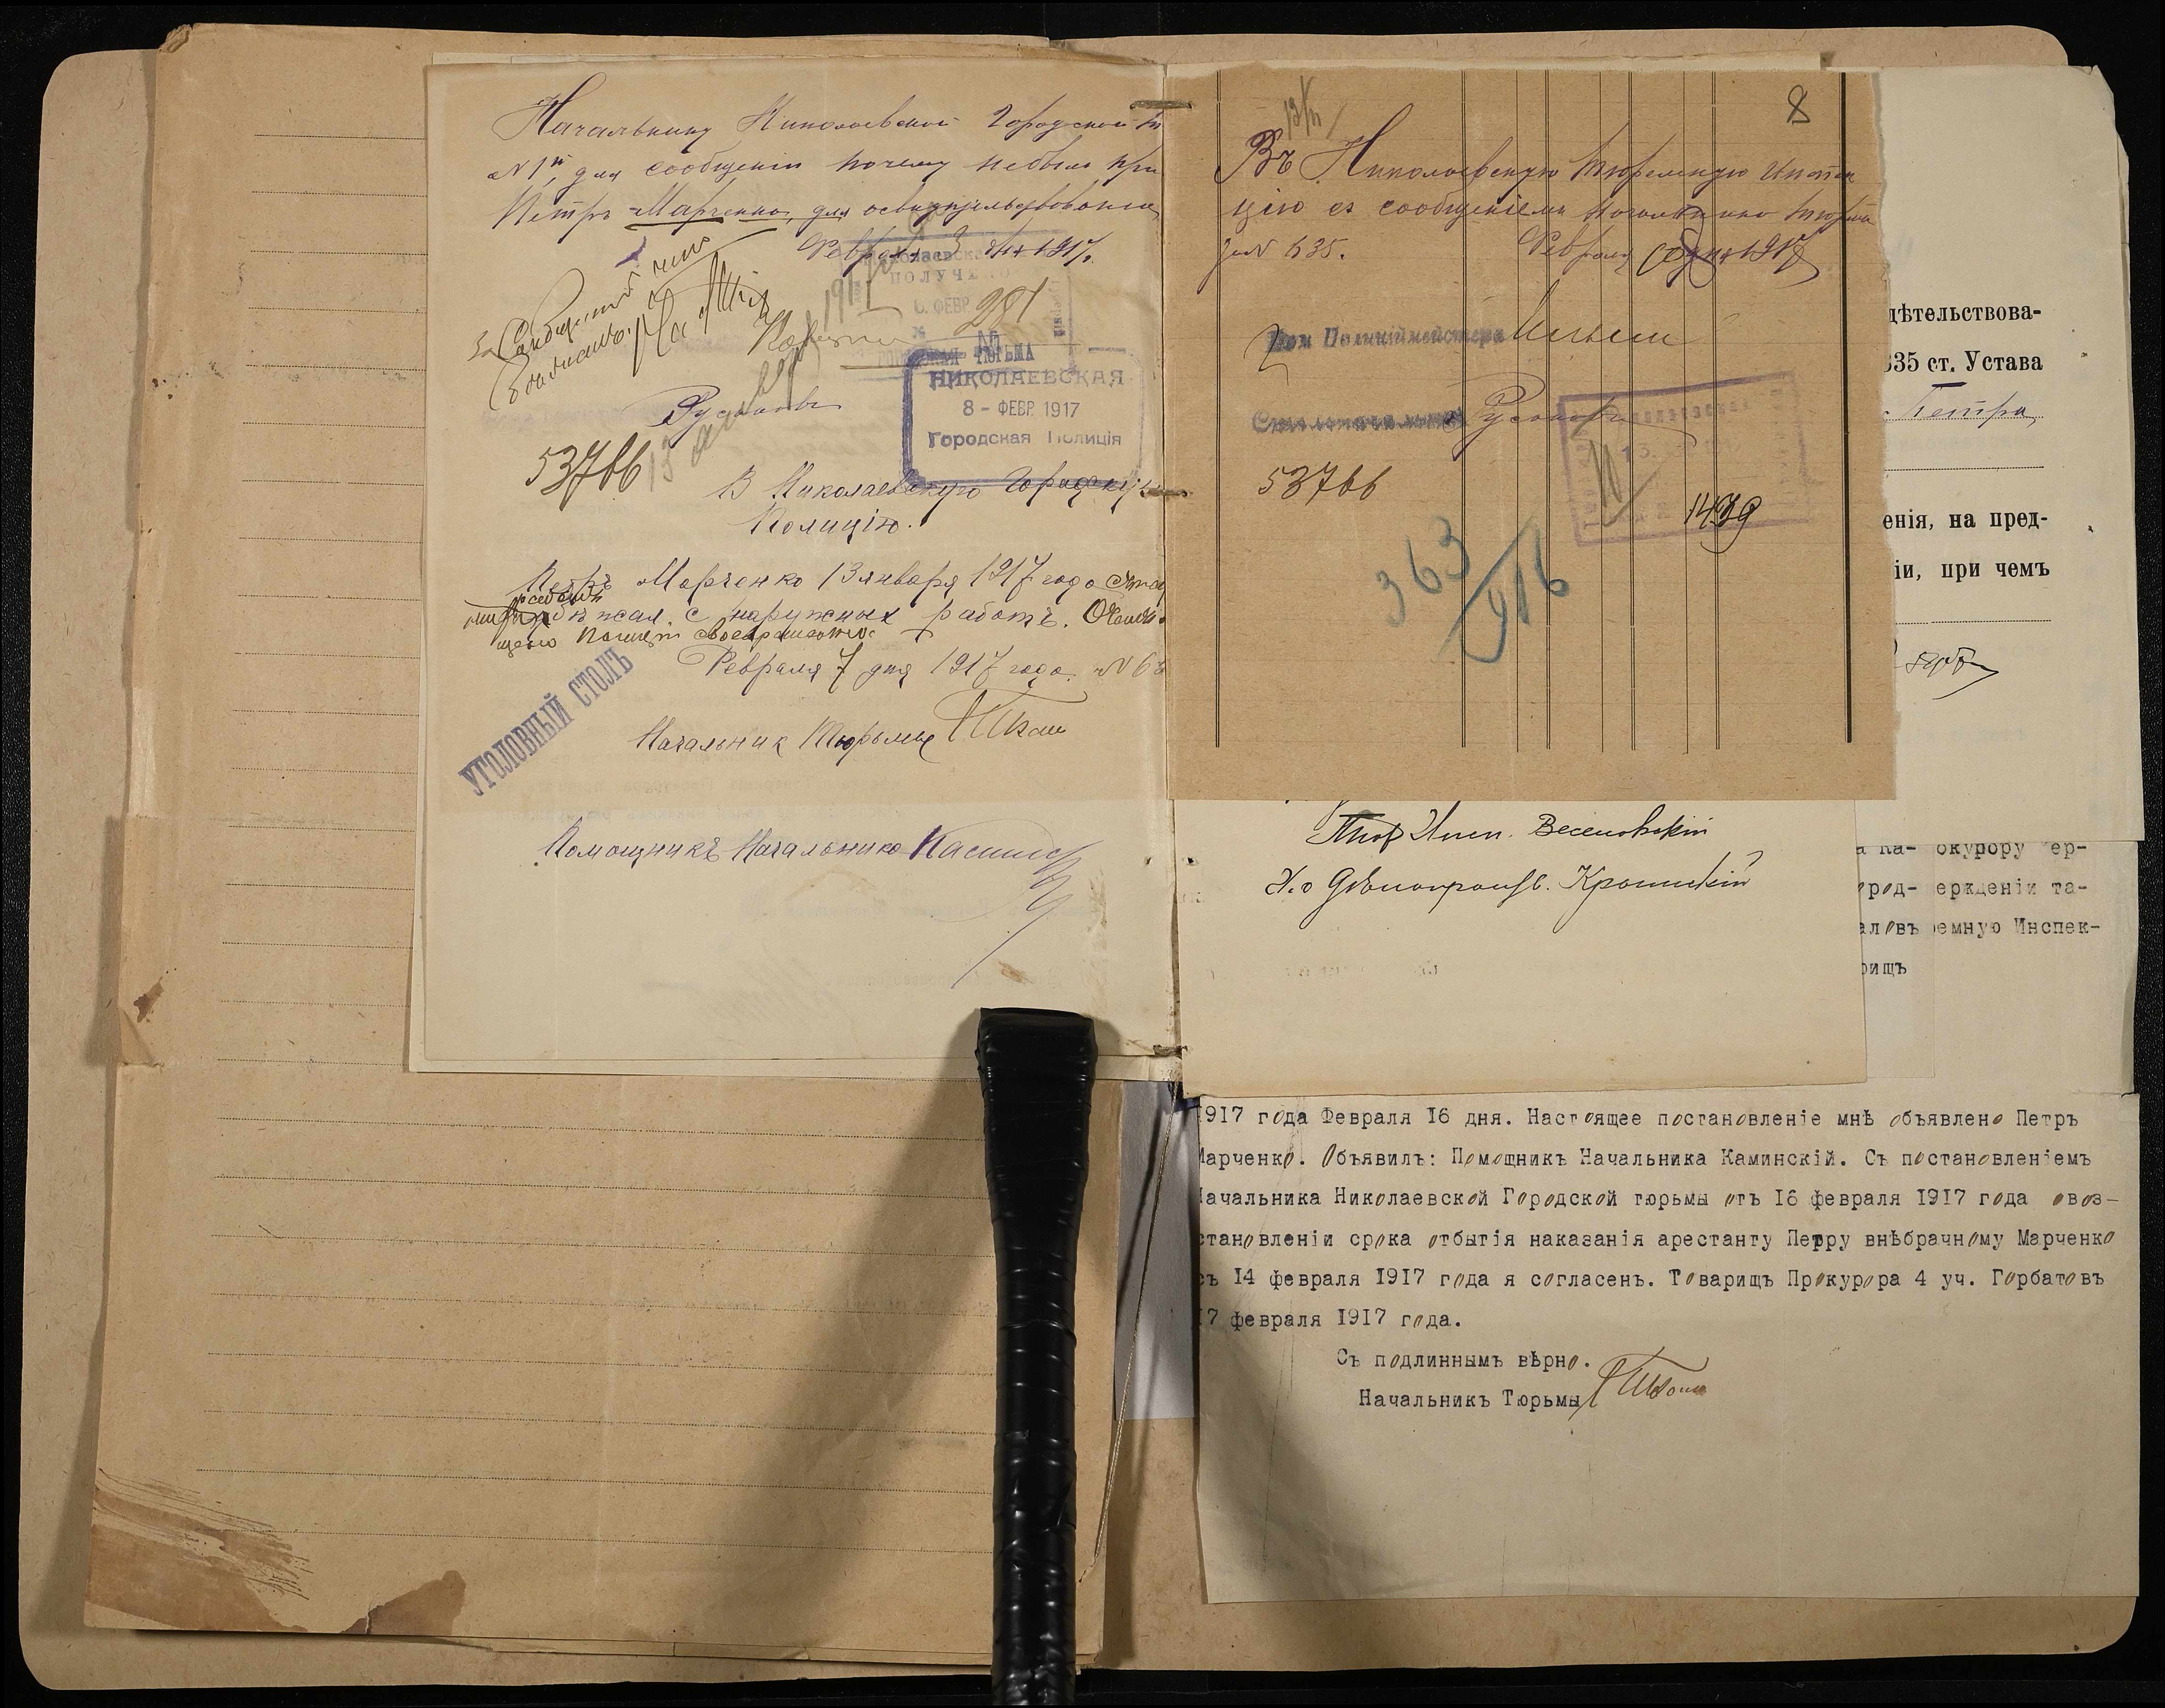 Начальнику Николаевской Городской
№ 1й, для сообщенія почему небылъ
Петръ Марченко, для освидѣтельствованія
Февраля 3 дня 1917.
ПОЛУЧЕНО
ФЕВР
281
ТЮРЬМА
НИКОЛАЕВСКАЯ
8 - ФЕВР. 1917
Городская Полиція
Русановъ
53766
13 января
В Николаевскую Городскую
Полицію.
Петръ Марченко 13 января 1917 года
бѣжал с наружных работъ.
Февраля 7 дня 1917 года. №
УГОЛОВНЫЙ СТОЛЪ
Начальник Тюрьмы
Помощникъ Начальника
8
Въ Николаевскую Тюремную Инспек
цію съ сообщеніемъ Начальника тюрьмы
за № 635. Февраля дня 1917
Пом Полиціймейстера
Столоначальникъ Русановъ
53766
1439
363/916
Тюр Инсп. Веселовскій
И. о Дѣлопроизв.
дѣтельствова-
335 ст. Устава
Петра
енія, на пред-
іи, при чемъ
а Ка- окурору ер-
ород- ержденіи та-
аловъ емную Инспек-
рищъ
1917 года Февраля 16 дня. Настоящее постановленіе мнѣ объявлено Петръ
Марченко. Объявилъ: Помощникъ Начальника Каминскій. Съ постановленіемъ
Начальника Николаевской Городской тюрьмы отъ 16 февраля 1917 года овоз-
становленіи срока отбытія наказанія арестанту Петру внѣбрачному Марченко
съ 14 февраля 1917 года я согласенъ. Товарищъ Прокурора 4 уч. Горбатовъ
17 февраля 1917 года.
Съ подлиннымъ вѣрно.
Начальникъ Тюрьмы